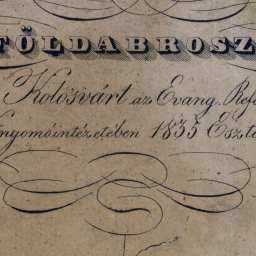 FÖLDABROSZ
Kolosvárt az Evang. Refo
nyomóintézetében 1835 Eszte